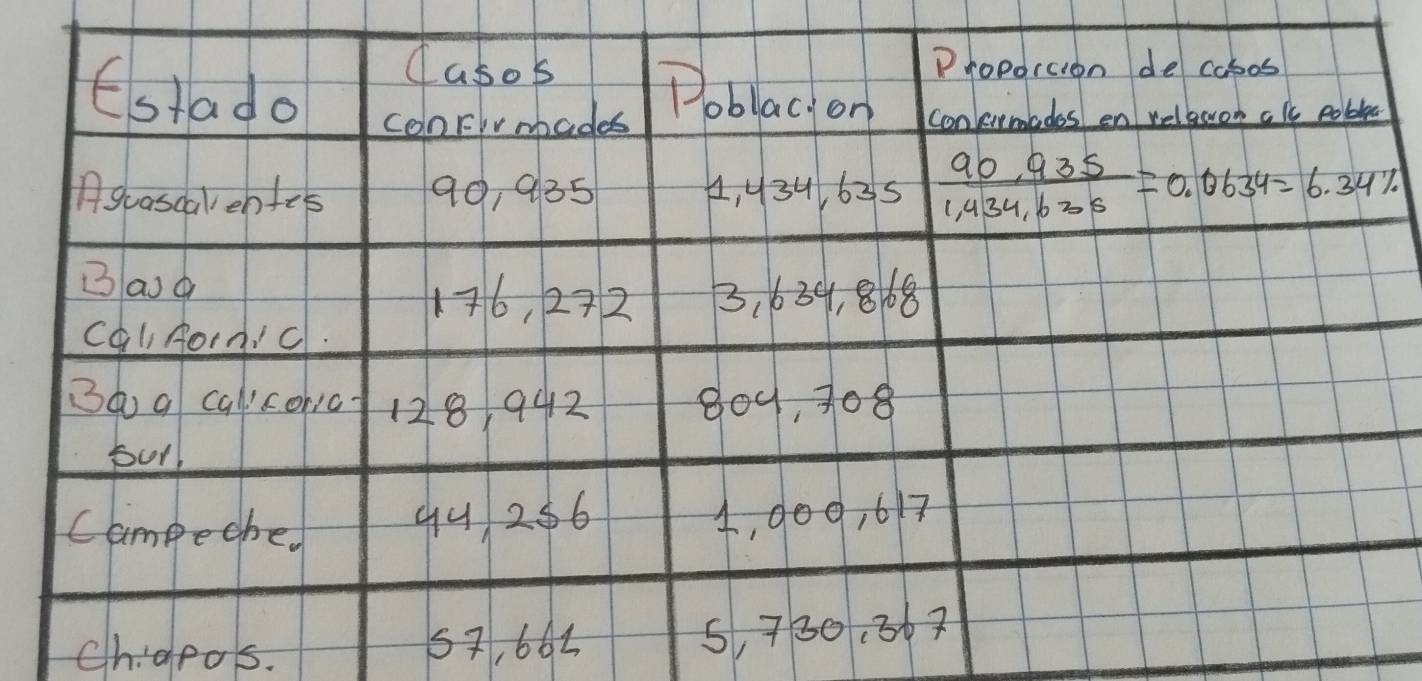 Estado
Casos
confirmados
Poblacion
Proporcion de casos
confirmados en relacion ala pobla
Aguascalientes
90,935
1,434,635
90,935
1,434,635
=0.0634=6.34%
Baja
California.
176,272
3,634,868
Baja California
sur.
128,942
804,708
Campeche.
44,256
1,000,617
Chiapas.
57,661
5,730,367